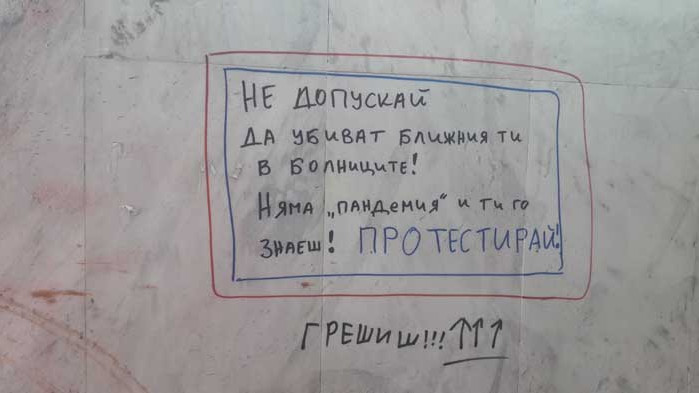 НЕ ДОПУСКАЙ
ДА УБИВАТ БЛИЖНИЯ ТИ
В БОЛНИЦИТЕ!
НЯМА „ПАНДЕМИЯ“ И ТИ ГО
ЗНАЕШ! ПРОТЕСТИРАЙ!
ГРЕШИШ!!! ↑↑↑